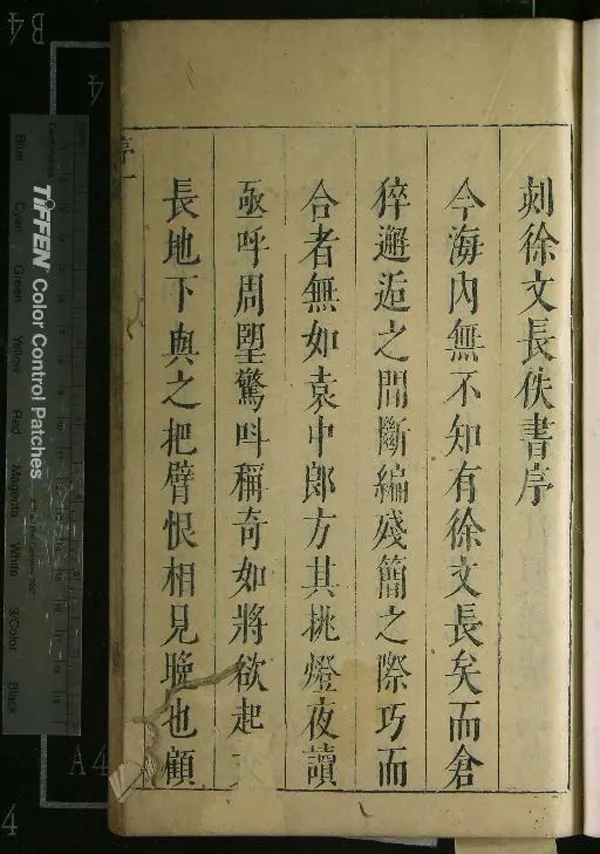 刻徐文長佚書序
今海内無不知有徐文長矣而倉
猝邂逅之間斷編殘簡之際巧而
合者無如袁中郎方其挑燈夜讀
亟呼周朢驚呌稱奇如將欲起
長地下與之把臂恨相見晚也顧
序一
B4
4
A4
4
TIFFEN Color Control Patches
Centimetres
Blue
Cyan
Green
Yellow
Red
Magenta
White
3/Color
Black